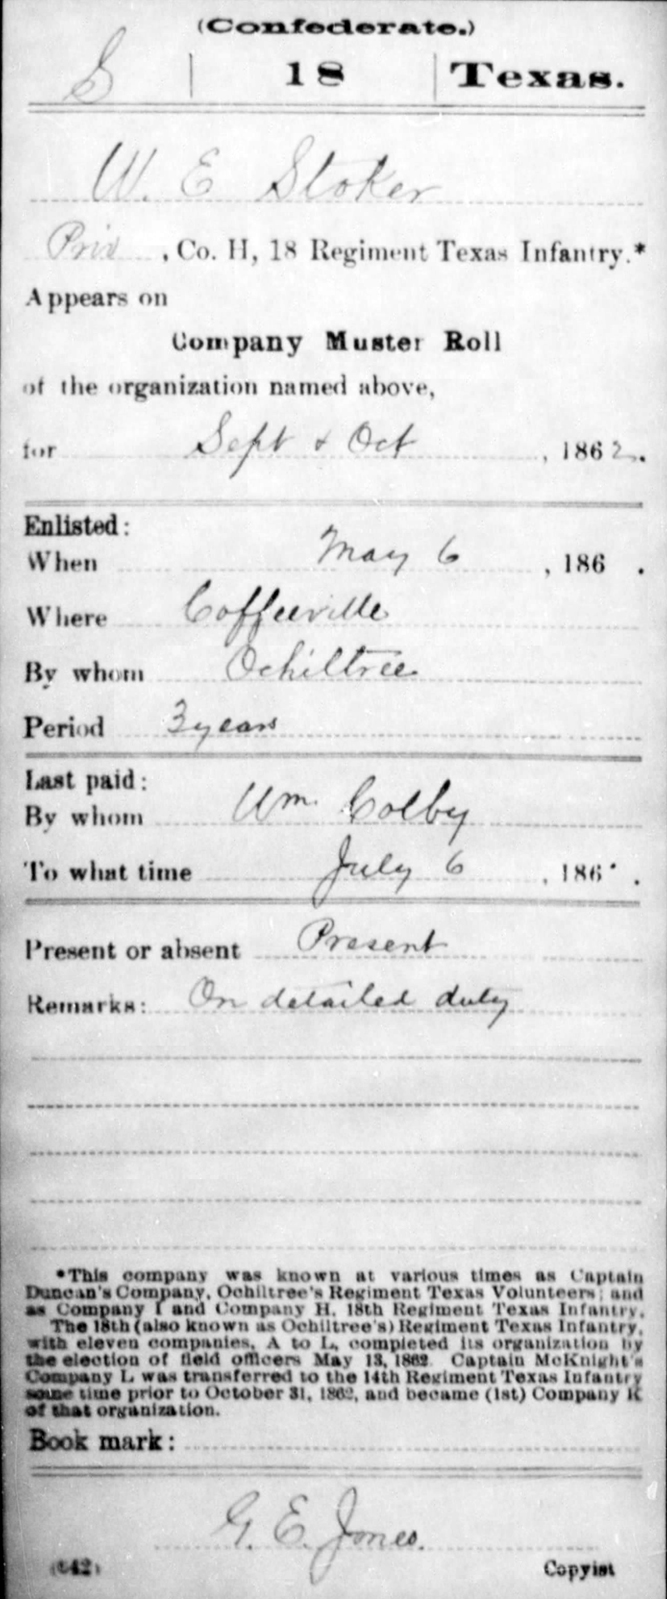 (Confederate.)
S | 18 | Texas.
W. E Stoker
Priv , Co. H, 18 Regiment Texas Infantry.*
Appears on
Company Muster Roll
of the organization named above,
for Sept & Oct , 1862.
Enlisted:
When May 6 , 186 .
Where Coffeeville
By whom Ochiltree
Period 3 years
Last paid:
By whom Wm. Colby
To what time July 6 , 186 .
Present or absent Present
Remarks: On detailed duty
*This company was known at various times as Captain
Duncan's Company, Ochiltree's Regiment Texas Volunteers; and
as Company I and Company H, 18th Regiment Texas Infantry.
The 18th (also known as Ochiltree's) Regiment Texas Infantry,
with eleven companies, A to L, completed its organization by
the election of field officers May 13, 1862. Captain McKnight's
Company L was transferred to the 14th Regiment Texas Infantry
some time prior to October 31, 1862, and became (1st) Company K
of that organization.
Book mark:
G. E. Jones.
(642) Copyist